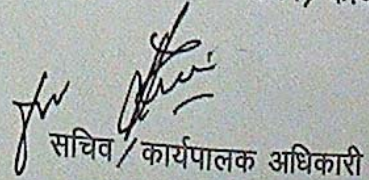 सचिव / कार्यपालक अधिकारी